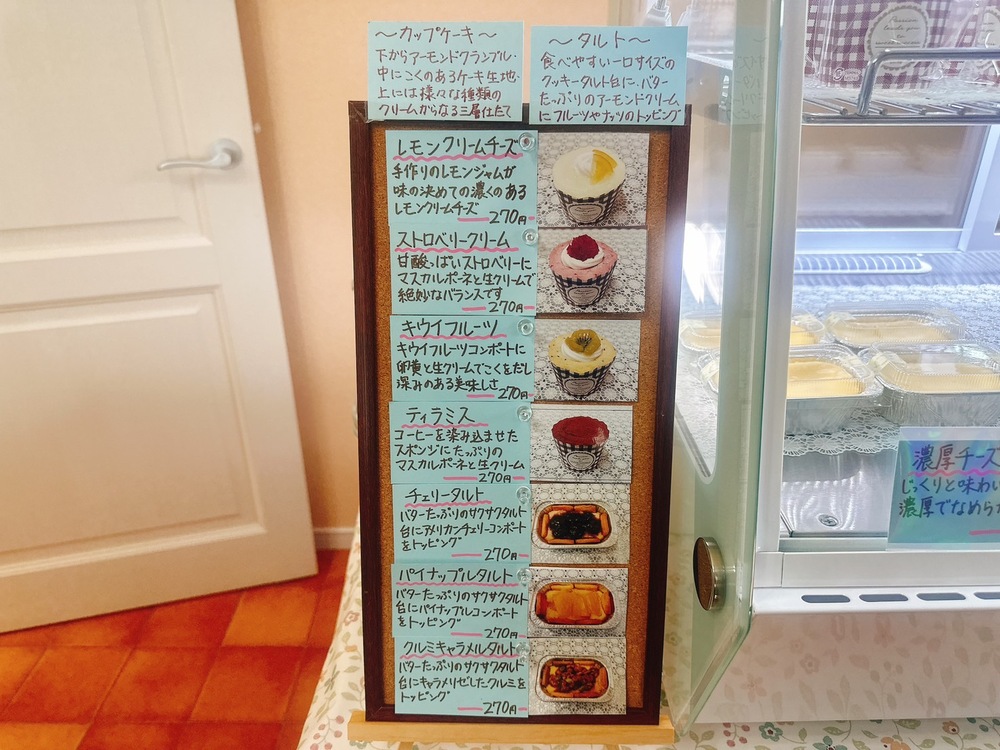 ～カップケーキ～
下からアーモンドクランブル・
中にこくのあるケーキ生地・
上には様々な種類の
クリームからなる三層仕たて
～タルト～
食べやすい一口サイズの
クッキータルト台に、バター
たっぷりのアーモンドクリーム
にフルーツやナッツのトッピング
レモンクリームチーズ
手作りのレモンジャムが
味の決めての濃くのある
レモンクリームチーズ
270円
ストロベリークリーム
甘酸っぱいストロベリーに
マスカルポーネと生クリームで
絶妙なバランスです
270円
キウイフルーツ
キウイフルーツコンポートに
卵黄と生クリームでこくをだし
深みのある美味しさ
270円
ティラミス
コーヒーを染み込ませた
スポンジにたっぷりの
マスカルポーネと生クリーム
270円
チェリータルト
バターたっぷりのサクサクタルト
台にアメリカンチェリーコンポート
をトッピング
270円
パイナップルタルト
バターたっぷりのサクサクタルト
台にパイナップルコンポート
をトッピング
270円
クルミキャラメルタルト
バターたっぷりのサクサクタルト
台にキャラメリゼしたクルミを
トッピング
270円
濃厚チーズ
じっくりと味わい
濃厚でなめらか